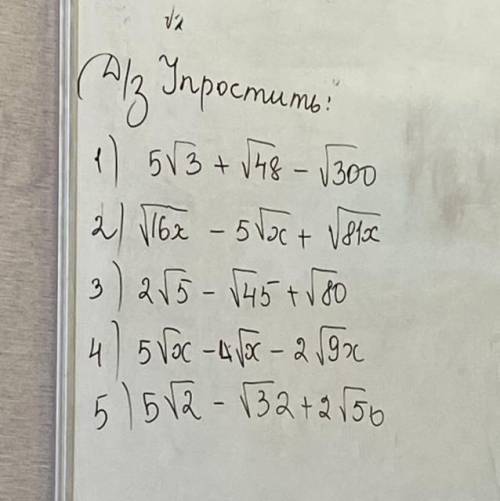 √2
Д/з Упростить:
1) 5√3 + √48 - √300
2) √16x - 5√x + √81x
3) 2√5 - √45 + √80
4) 5√x - 4√x - 2√9x
5) 5√2 - √32 + 2√50